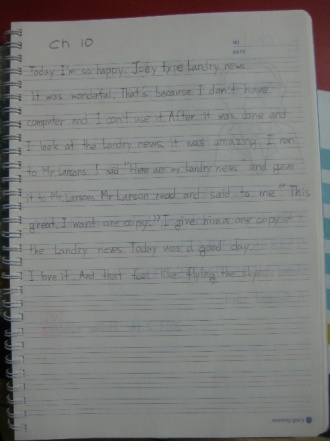 Ch 10
NO.
DATE
Today I'm so happy. Joey type Landry news.
It was wonderful, That's because I don't have
computer and I can't use it. After it was done and
I look at the Landry news, it was amazing. I ran
to Mr Larsons. I said "Here are my Landry news and gave
it to Mr. Larsons. Mr Larson read and said to me "This
great. I want one copy." I give him a one copy of
the Landry news. Today was a good day.
I love it. And that feel like flying the sky.